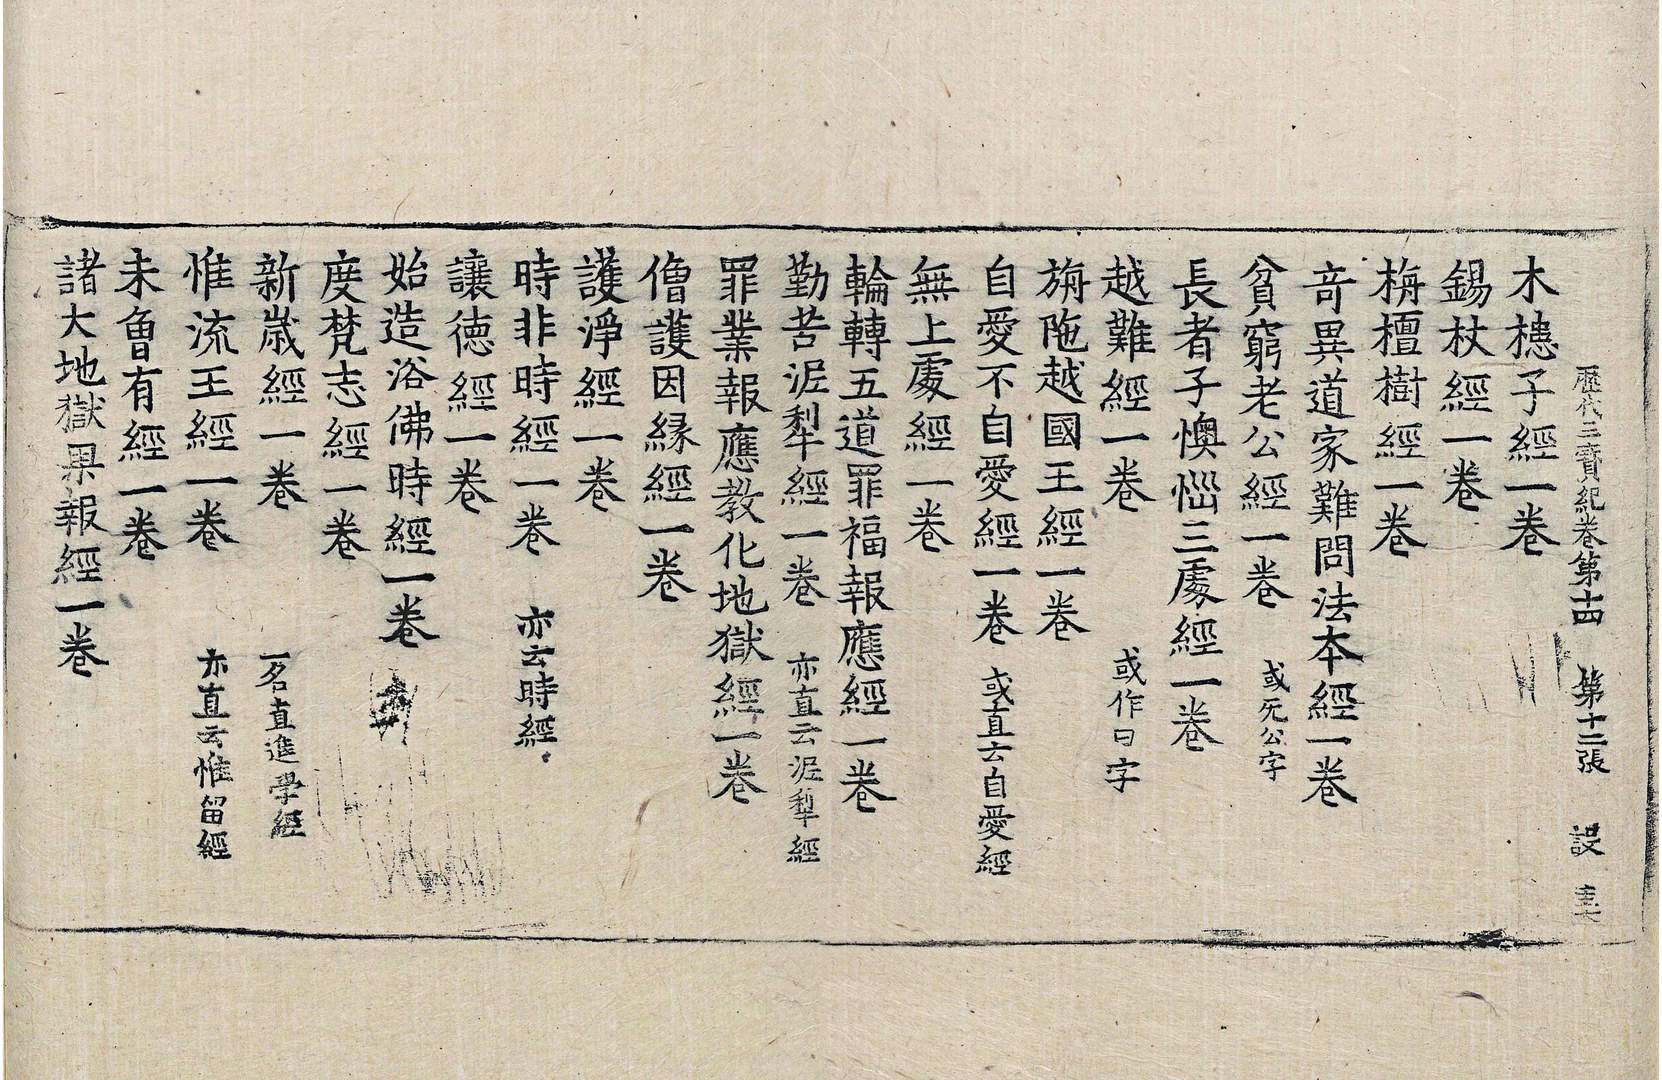 歷代三寶紀卷第十四 第十二張 設
木槵子經一卷
錫杖經一卷
栴檀樹經一卷
竒異道家難問法本經一卷
貧窮老公經一卷 或无公字
長者子懊惱三處經一卷
越難經一卷 或作曰字
旃陁越國王經一卷
自愛不自愛經一卷 或直云自愛經
無上處經一卷
輪轉五道罪福報應經一卷
勤苦泥犁經一卷 亦直云泥犁經
罪業報應教化地獄經一卷
僧護因緣經一卷
護淨經一卷
時非時經一卷 亦云時經
讓德經一卷
始造浴佛時經一卷
度梵志經一卷
新歲經一卷 一名直進學經
惟流王經一卷 亦直云惟留經
未曾有經一卷
諸大地獄果報經一卷